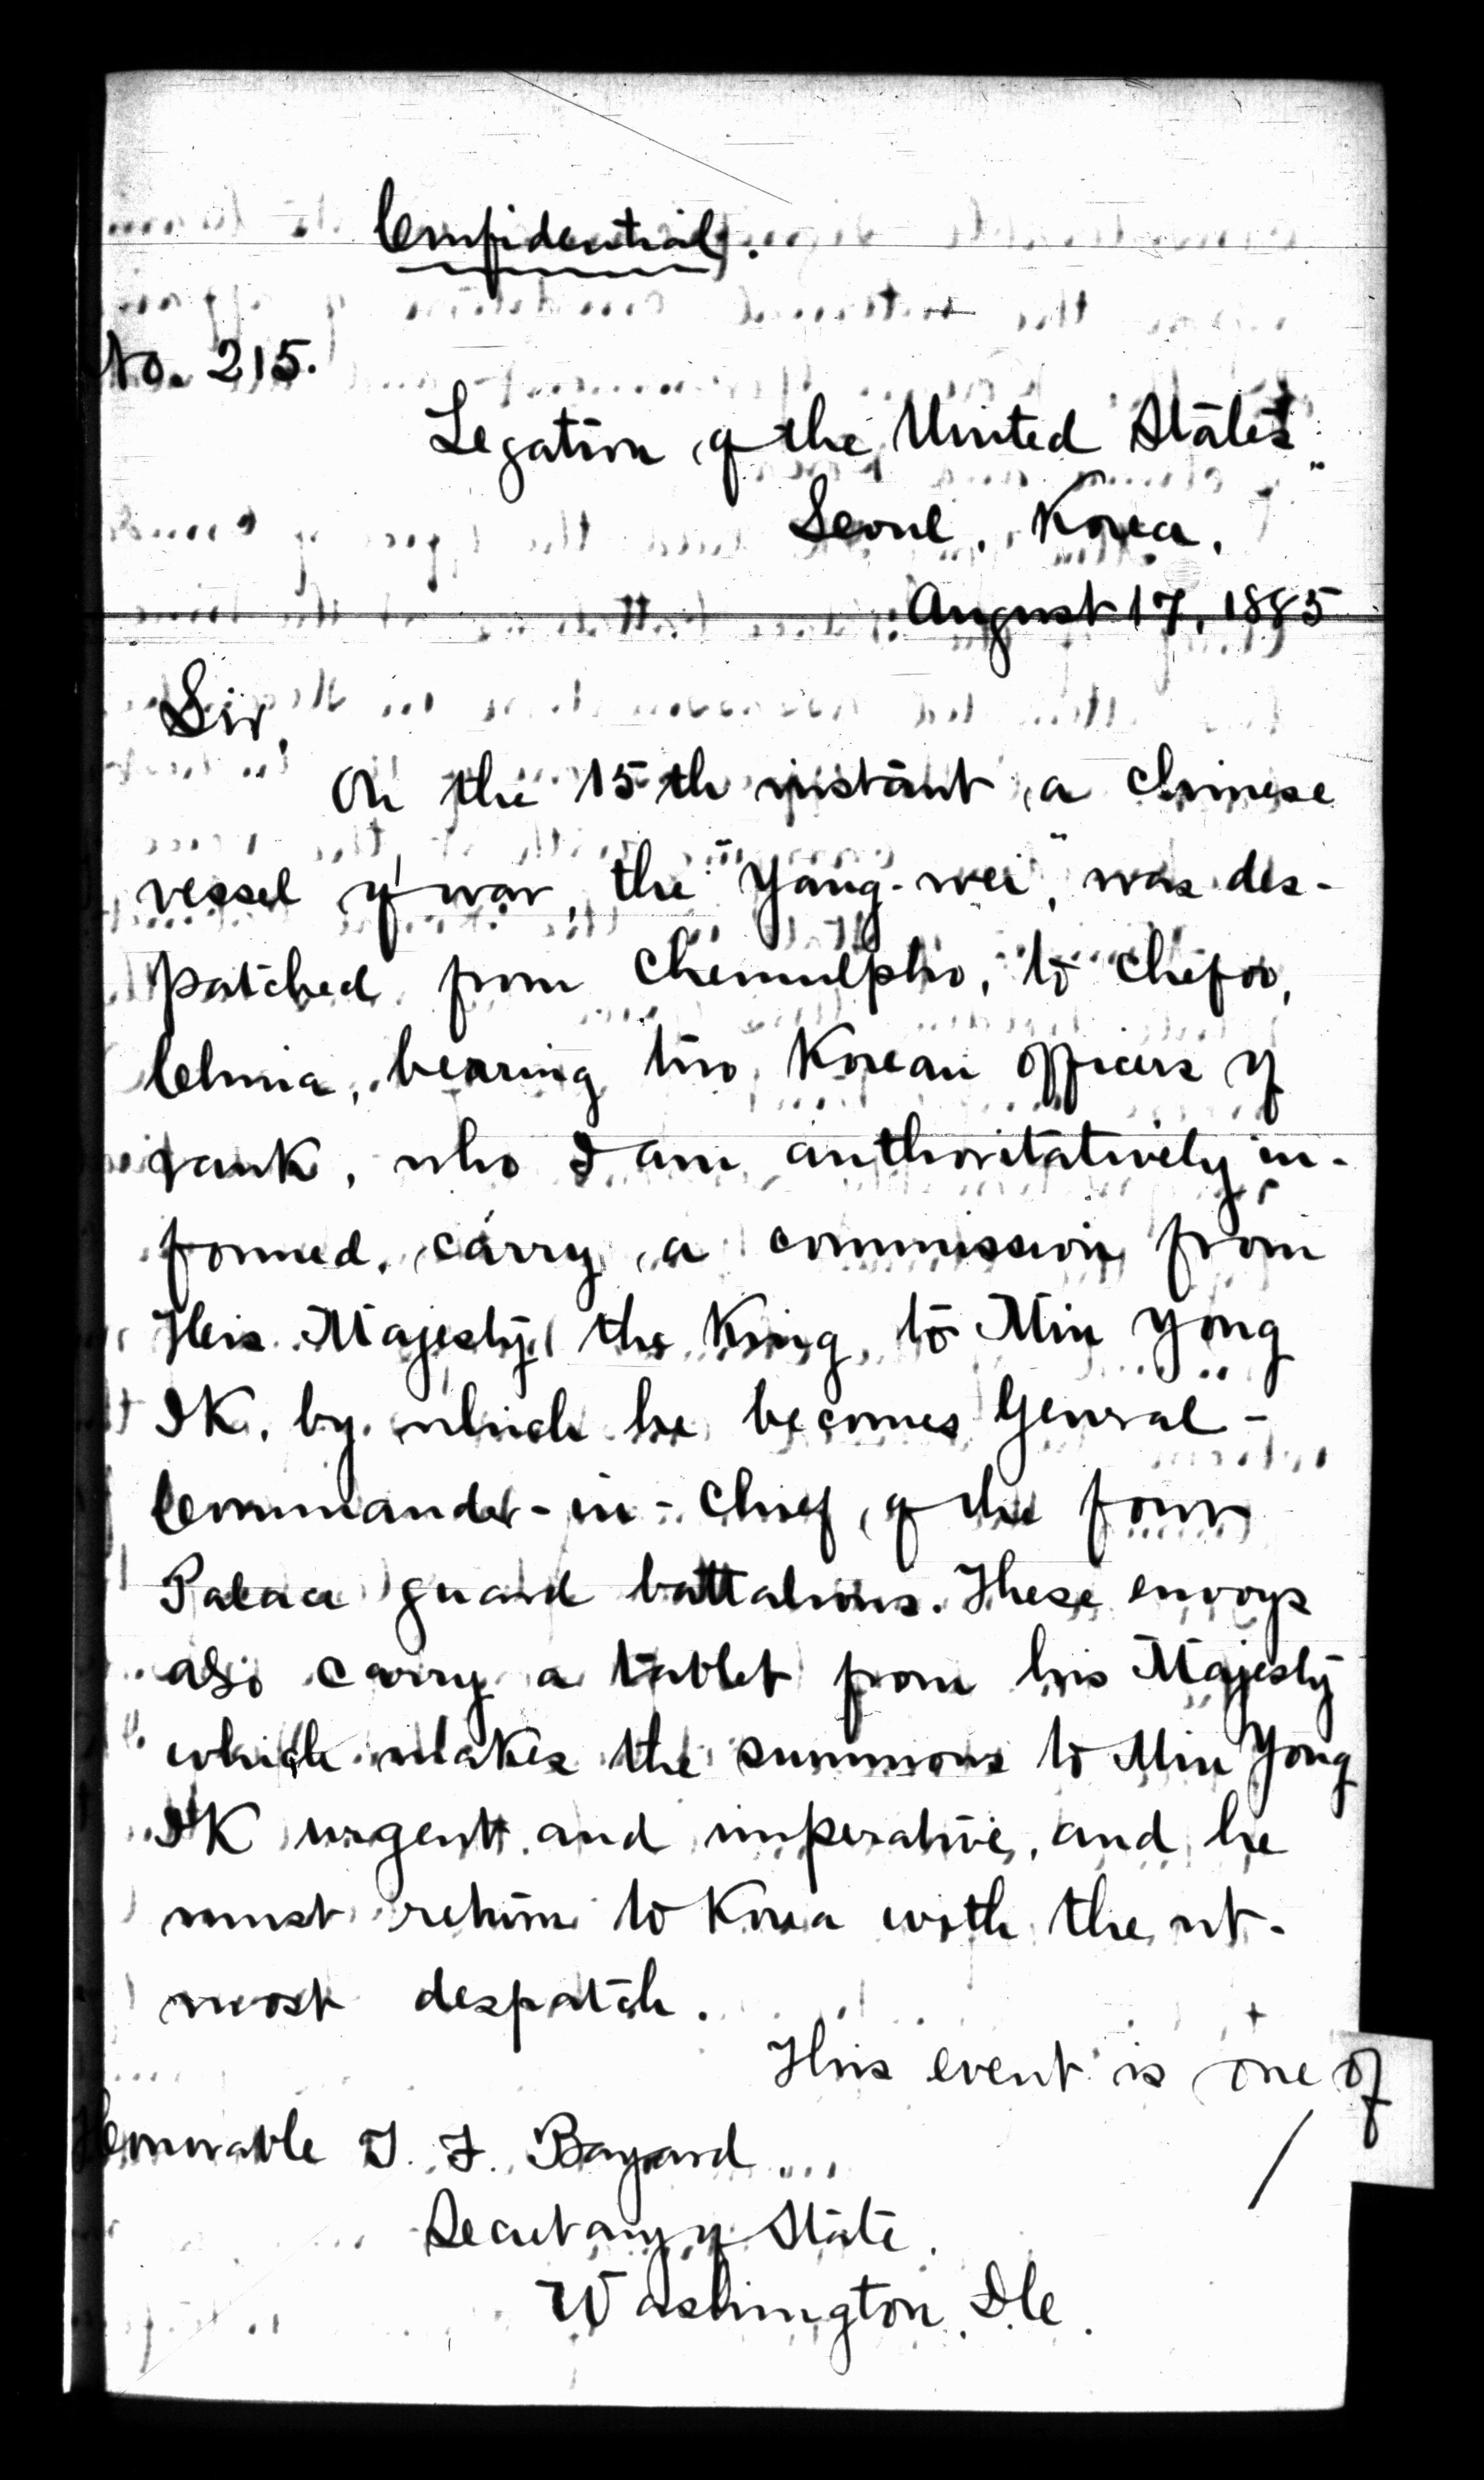 Confidential.
No. 215.
Legation of the United States
Seoul, Korea,
August 17, 1885
Sir,
On the 15th instant, a Chinese
vessel of war, the "Yang-wei", was des-
patched from Chemulpho, to Chefoo,
China, bearing two Korean officers of
rank, who I am authoritatively in-
formed, carry a commission from
His Majesty the King, to Min Yong
Ik, by which he becomes General-
Commander-in-Chief, of the four
Palace guard battalions. These envoys
also carry a tablet from his Majesty
which makes the summons to Min Yong
Ik urgent and imperative, and he
must return to Korea with the ut-
most despatch.
This event is one of
Honorable T. F. Bayard
Secretary of State,
Washington, D.C.